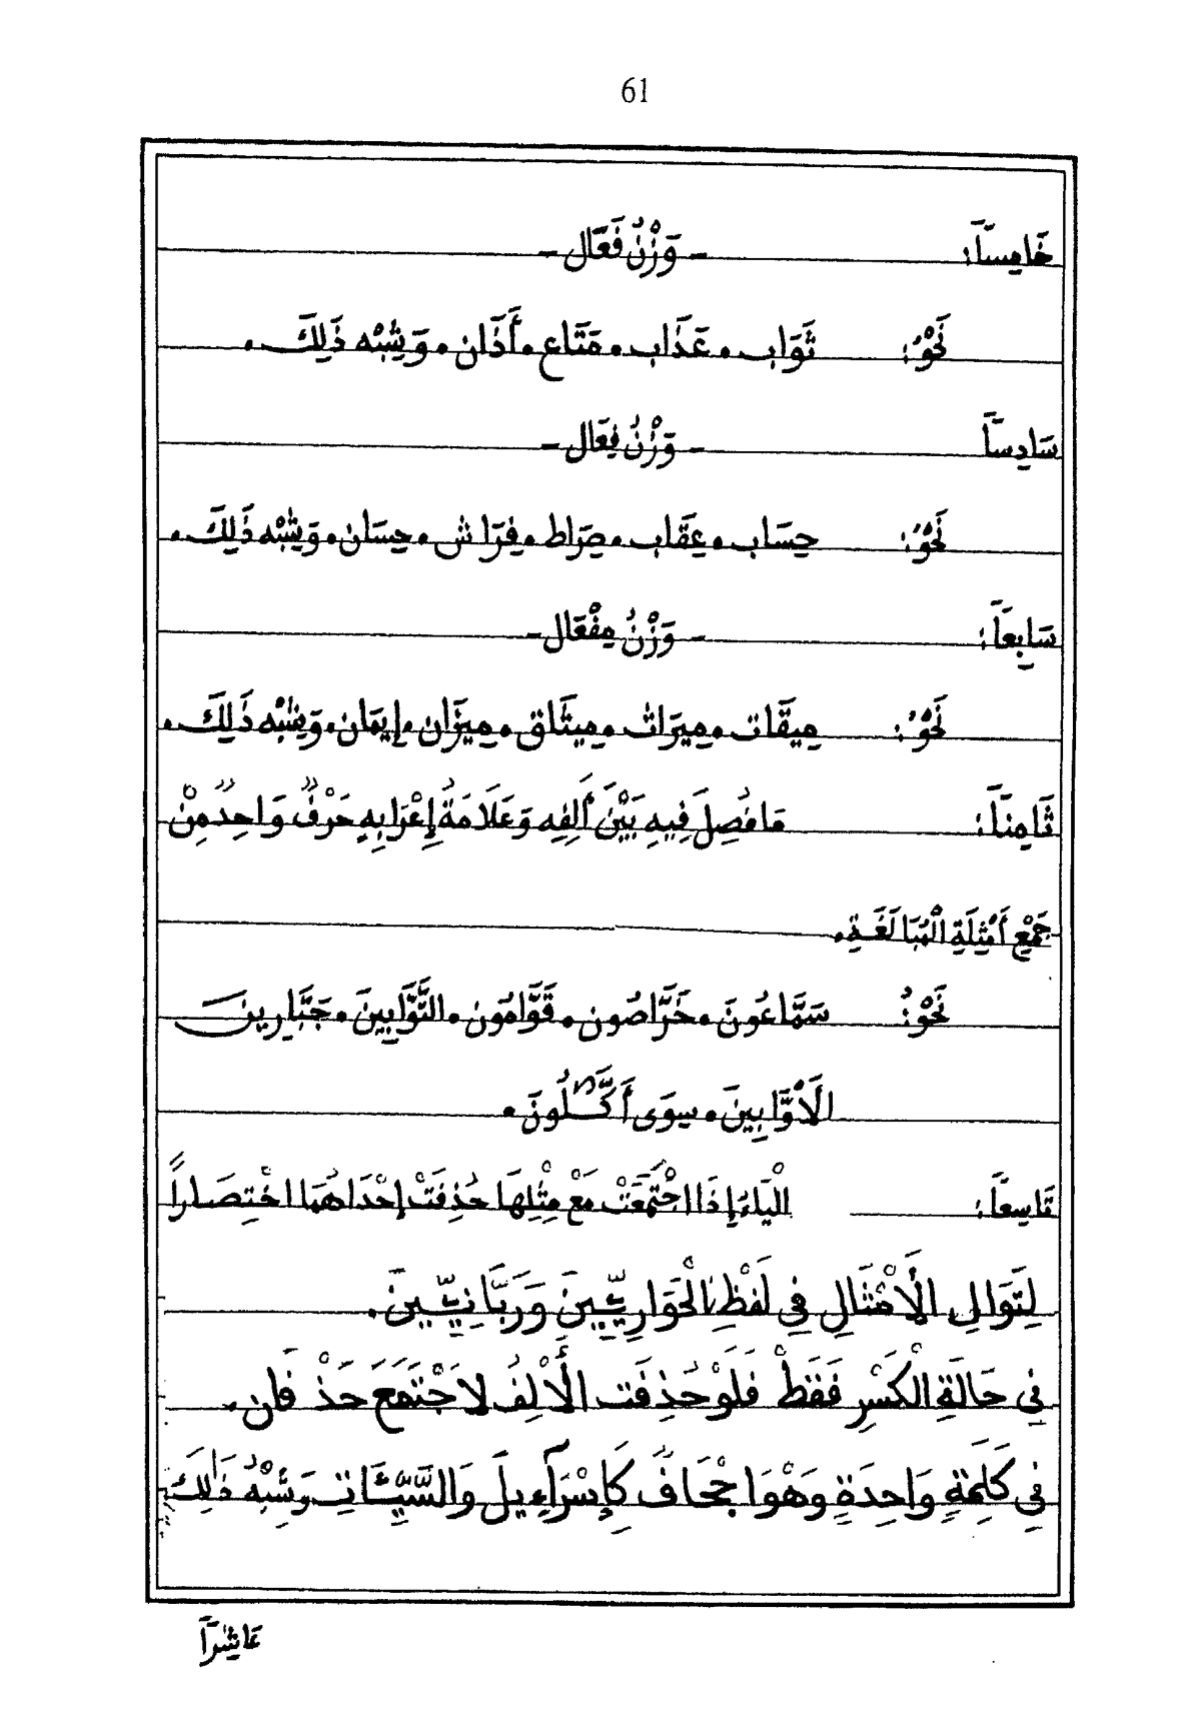 61
خَامِسَاً: - وَزْنُ فَعَال -
نَحْوُ: ثَوَاب • عَذَاب • مَتَاع • أَذَان • وَشِبْه ذَلِكَ •
سَادِسَاً - وَزْنُ فِعَال -
نَحْوُ: حِسَاب • عِقَاب • صِرَاط • فِرَاش • حِسَان • وَشِبْه ذَلِكَ •
سَابِعَاً: - وَزْنُ مِفْعَال -
نَحْوُ: مِيقَات • مِيرَاث • مِيثَاق • مِيزَان • إِيمَان • وَشِبْه ذَلِكَ •
ثَامِنَاً: مَا فُصِلَ فِيهِ بَيْنَ أَلِفِه وَعَلَامَةُ إِعْرَابِهِ حَرْفٌ وَاحِدٌ مِنْ
جَمْعِ أَمْثِلَةِ الْمُبَالَغَةِ •
نَحْوُ: سَمَّاعُونَ • خَرَّاصُون • قَوَّامُون • التَّوَّابِينَ • جَبَّارِينَ
الْأَوَّابِينَ • سِوَى أَكَّـٰلُونَ •
تَاسِعَاً: الْيَاءُ إِذَا اجْتَمَعَتْ مَعْ مِثْلِهَا حُذِفَتْ إِحْدَاهُمَا اخْتِصَاراً
لِتَوَالِ الْأَمْثَالِ فِي لَفْظِ الْحَوَارِيِّـينَ وَرَبَّانِيِّـينَ •
فِي حَالَةِ الْكَسْرِ فَقَطْ فَلَوْ حُذِفَت الْأَلِفُ لَاجْتَمَعَ حَذْفَان •
فِي كَلِمَةٍ وَاحِدَةٍ وَهْوَ اجْحَافٌ كَإِسْرَآءِيلَ وَالسَّيِّـَٔاتِ وَشِبْهُ ذَٰلِكَ
عَاشِرَاً